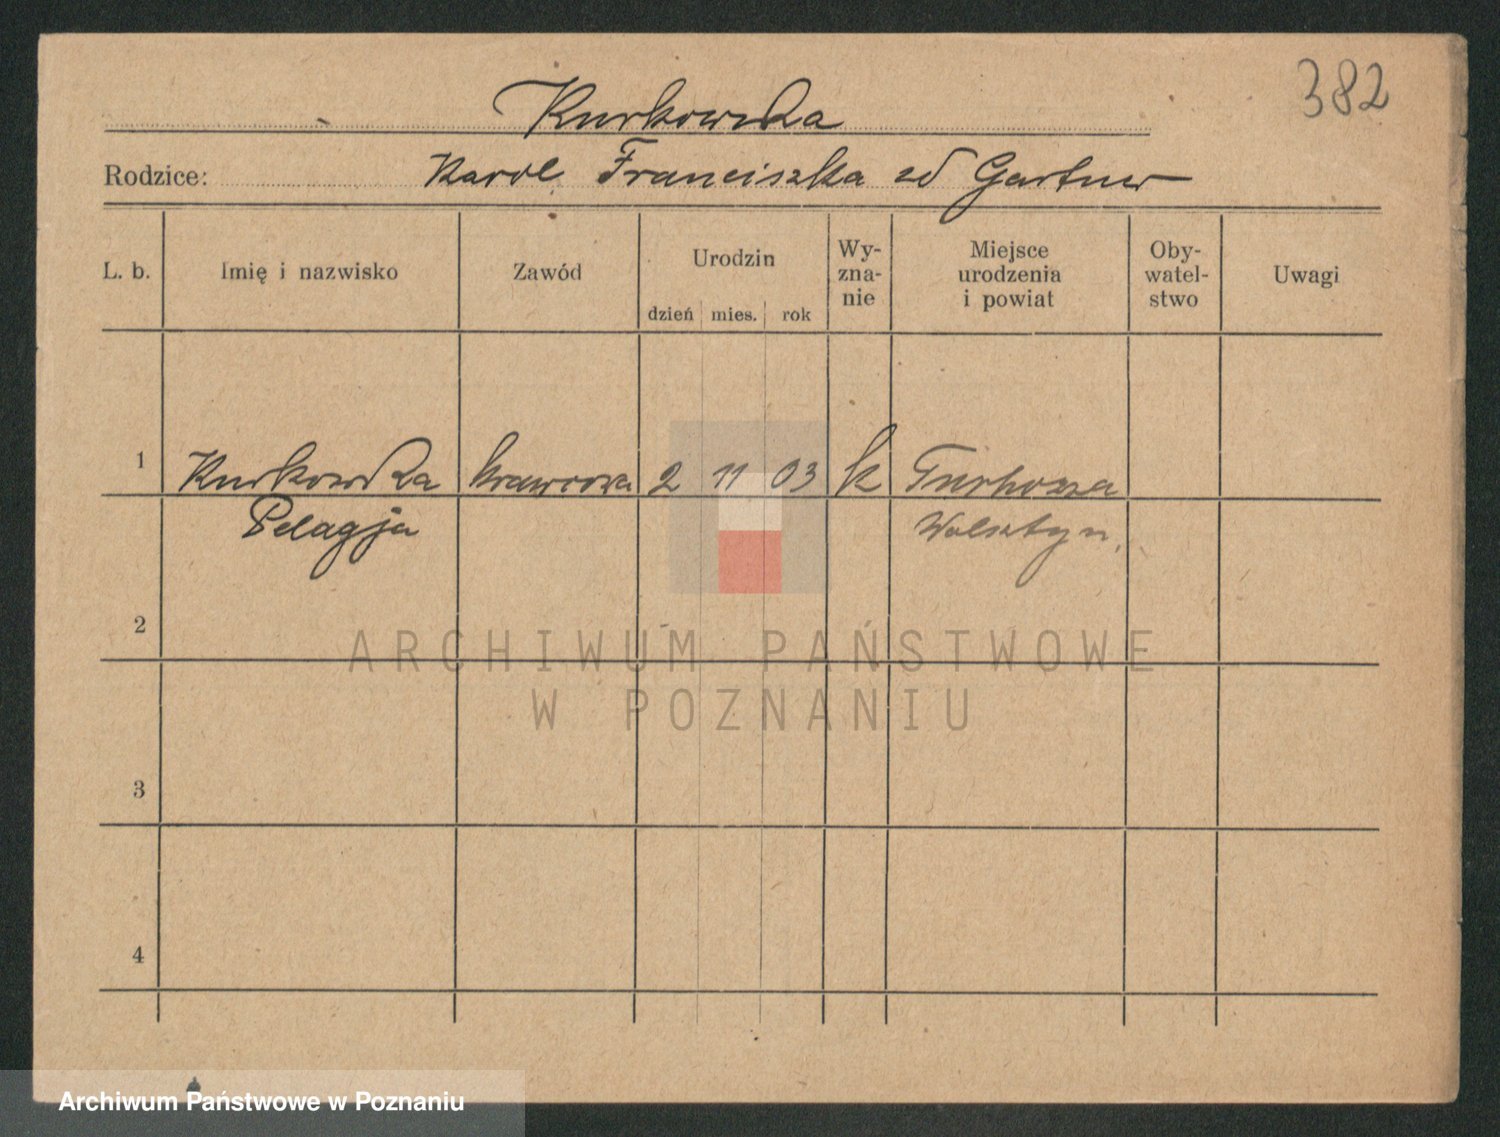 382
Kurkowska
Rodzice: Karol Franciszka zd Gartner
L. b. Imię i nazwisko Zawód Urodzin dzień mies. rok Wy- zna- nie Miejsce urodzenia i powiat Oby- watel- stwo Uwagi
1 Kurkowska krawcowa 2 11 03 k
Pelagja Wolsztyn
2
ARCHIWUM PAŃSTWOWE
W POZNANIU
3
4
Archiwum Państwowe w Poznaniu